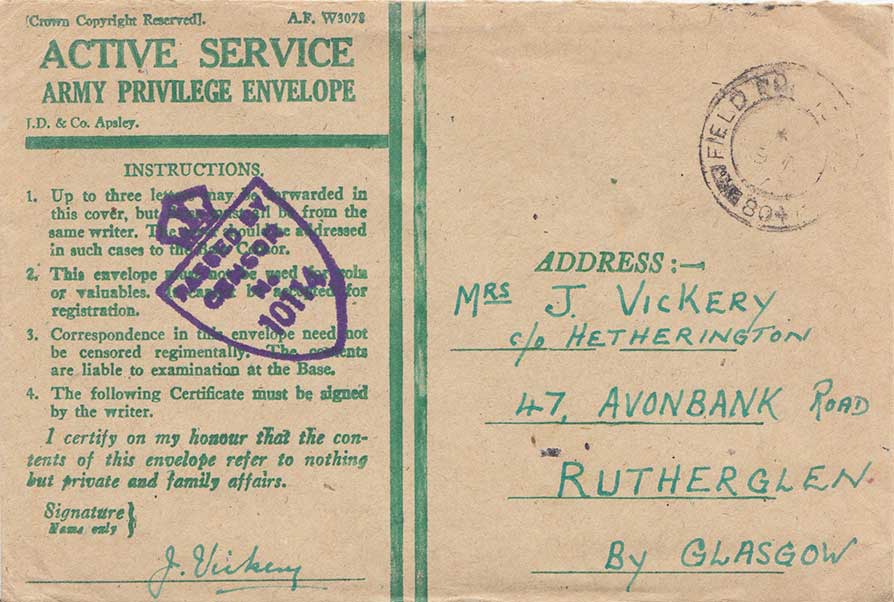 [Crown Copyright Reserved].
A.F. W3078
ACTIVE SERVICE
ARMY PRIVILEGE ENVELOPE
J.D. & Co. Apsley.
INSTRUCTIONS.
1. Up to three letters may be forwarded in
this cover, but must be from the
same writer. The should be addressed
in such cases to the Base Censor.
2. This envelope must not be used for coin
or valuables. It cannot be accepted for
registration.
3. Correspondence in this envelope need not
be censored regimentally. The contents
are liable to examination at the Base.
4. The following Certificate must be signed
by the writer.
I certify on my honour that the con-
tents of this envelope refer to nothing
but private and family affairs.
Signature
Name only
J. Vickery
PASSED BY
CENSOR
No
10114
FIELD
804
ADDRESS :—
MRS J. VICKERY
c/o HETHERINGTON
47, AVONBANK ROAD
RUTHERGLEN
BY GLASGOW